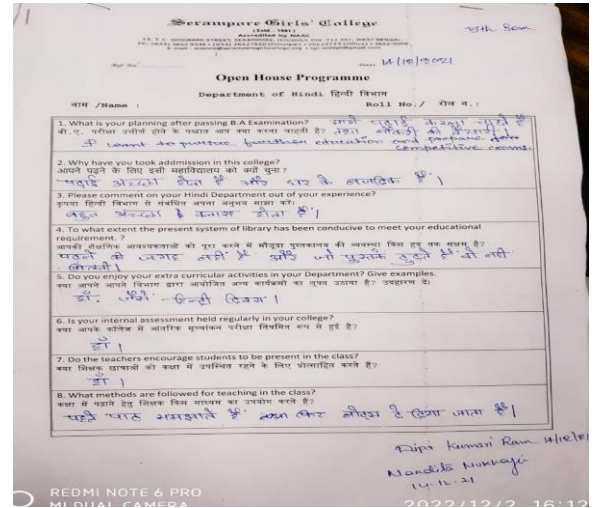 Serampore Girls' College
5th Sem
(Estd. 1981)
Accredited by NAAC
Ref. No.
Date: 14/12/2021
Open House Programme
Department of Hindi हिन्दी विभाग
नाम /Name :
Roll No./ रोल न. :
1. What is your planning after passing B.A Examination? आगे पढ़ाई करना चाहते हैं
बी.ए. परीक्षा उत्तीर्ण होने के पश्चात आप क्या करना चाहती हैं? तथा नौकरी की तैयारी।
I want to further education and prepare for
competitive exams.
2. Why have you took addmission in this college?
आपने पढ़ने के लिए इसी महाविद्यालय को क्यों चुना ?
पढ़ाई अच्छा होता है और घर के नजदीक है।
3. Please comment on your Hindi Department out of your experience?
कृपया हिन्दी विभाग से संबंधित अपना अनुभव साझा करें।
बहुत अच्छा क्लास होता है।
4. To what extent the present system of library has been conducive to meet your educational
requirement. ?
आपकी शैक्षणिक आवश्यकताओं को पूरा करने में मौजूदा पुस्तकालय की व्यवस्था किस हद तक सक्षम है?
पढ़ने की जगह नहीं है और जो पुस्तक ढूढते हैं वो नहीं
मिलती।
5. Do you enjoy your extra curricular activities in your Department? Give examples.
क्या आपने आपने विभाग द्वारा आयोजित अन्य कार्यक्रमों का लुफ्त उठाया है? उदाहरण दें।
हाँ, जैसे- हिन्दी दिवस।
6. Is your internal assessment held regularly in your college?
क्या आपके कॉलेज में आंतरिक मूल्यांकन परीक्षा नियमित रूप से हुई है?
हाँ।
7. Do the teachers encourage students to be present in the class?
क्या शिक्षक छात्राओं को कक्षा में उपस्थित रहने के लिए प्रोत्साहित करते हैं?
हाँ।
8. What methods are followed for teaching in the class?
कक्षा में पढ़ाने हेतु शिक्षक किस माध्यम का उपयोग करते हैं?
पहले पाठ समझाते हैं तथा फिर नोट्स दे दिया जाता है।
Dipa Kumari Ram 14/12/21
Nandita Mukherjee
14.12.21
REDMI NOTE 6 PRO
MI DUAL CAMERA
2022/12/2 16:12